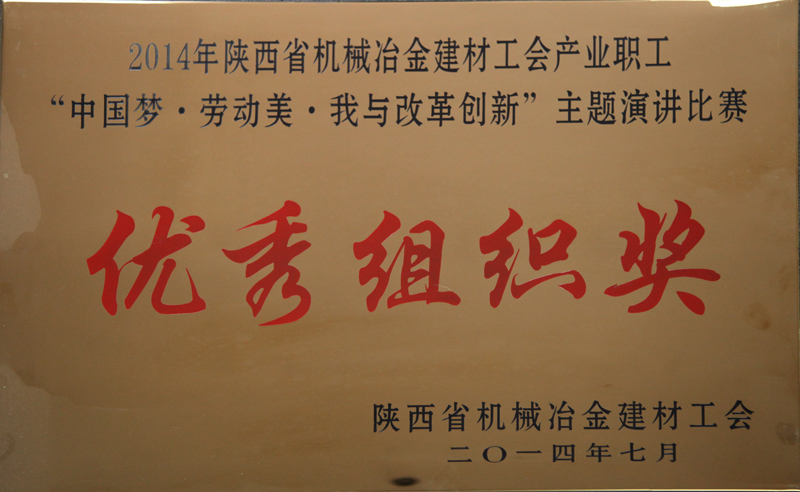 2014年陕西省机械冶金建材工会产业职工
“中国梦·劳动美·我与改革创新”主题演讲比赛
优秀组织奖
陕西省机械冶金建材工会
二〇一四年七月